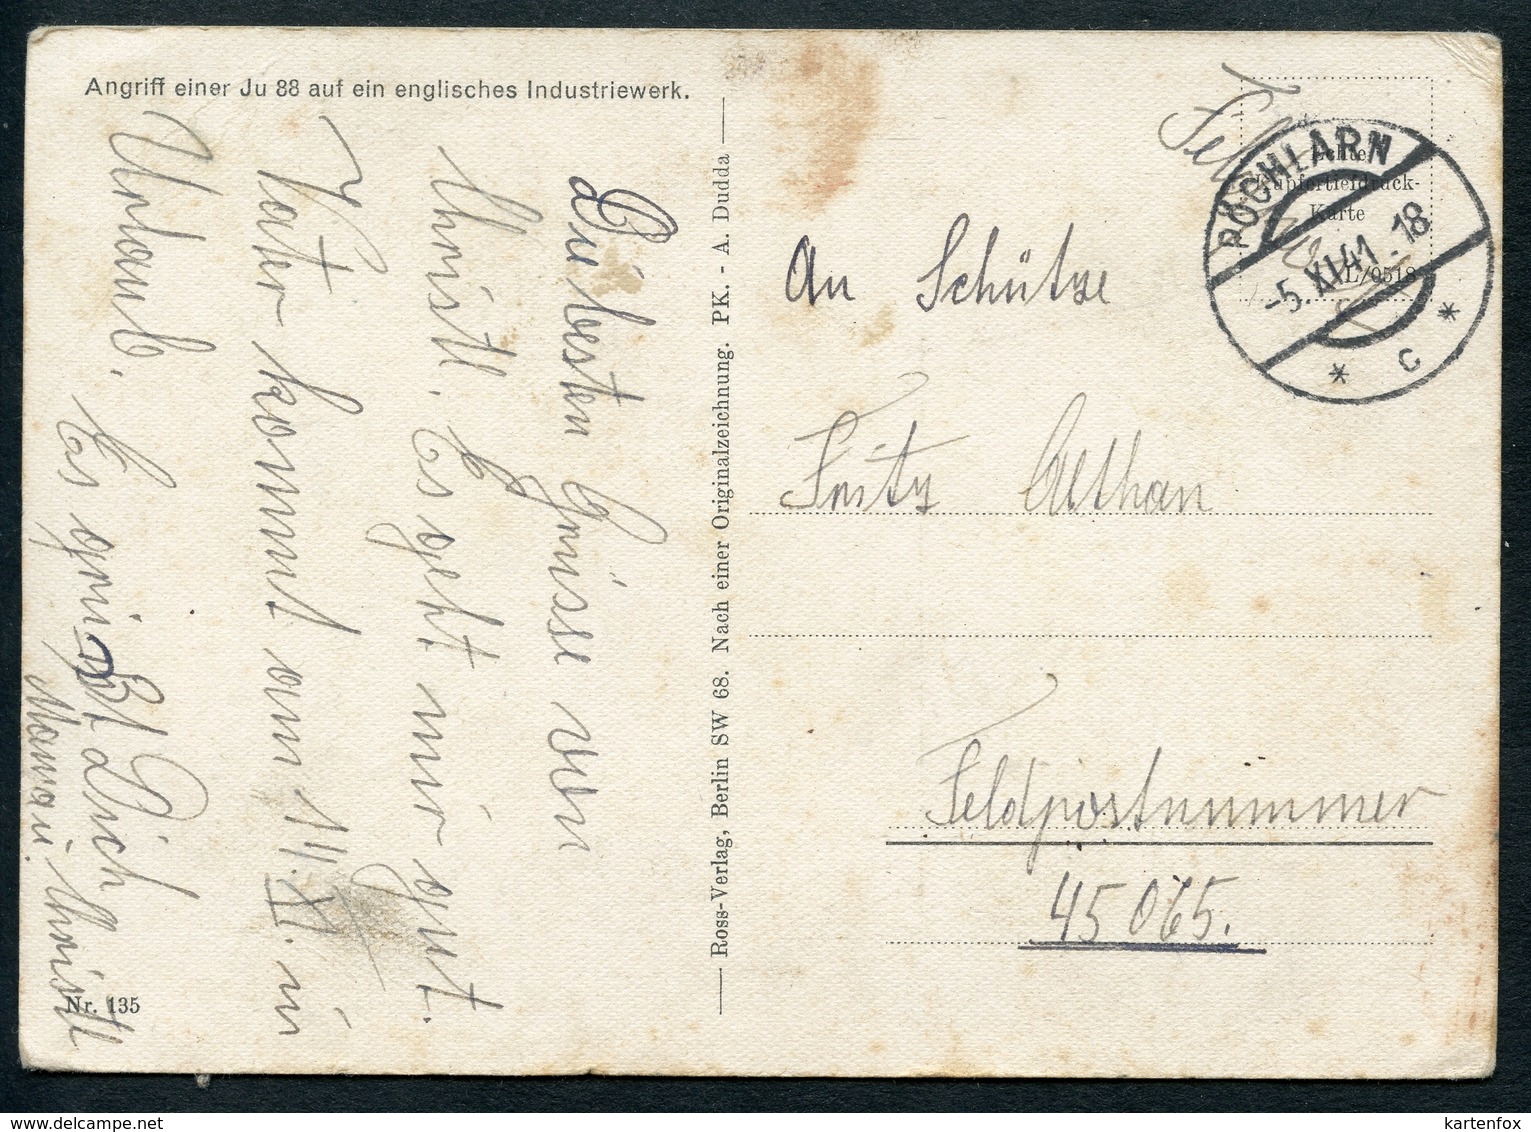 Angriff einer Ju 88 auf ein englisches Industriewerk.
Die besten Grüsse von
Christl. Es geht mir gut.
Vater kommt am 14. XI. in
Urlaub. Es grüßt Dich
Mama u. Christl
Nr. 135
Ross-Verlag, Berlin SW 68. Nach einer Originalzeichnung. PK. - A. Dudda
Echte
Kupfertiefdruck-
Karte
L/0518
PÖCHLARN
-5.XI.41.-18
* c *
An Schütze
Fritz Althan
Feldpostnummer
45 065.
kartenfox